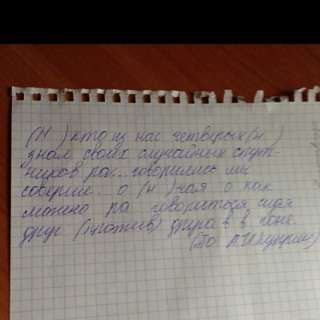 (Н )кто из нас четверых (н )
знал своих случайных спут-
ников ра.. говорились мы
соверше. о (н )зная о как
можно ра говориться сидя
друг (против) друга в в оне
(По А.И.Куприну)